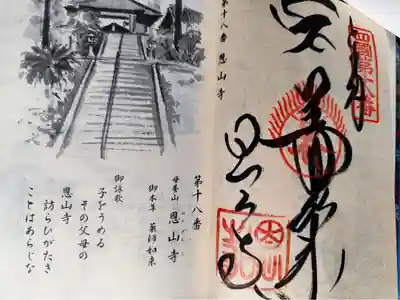 四國第十八番
奉拝
薬師如来
恩山寺
第十八番 恩山寺
第十八番
母養山 恩山寺
御本尊 薬師如来
御詠歌
子をうめる
その父母の
訪らひがたき
恩山寺
ことはあらじな